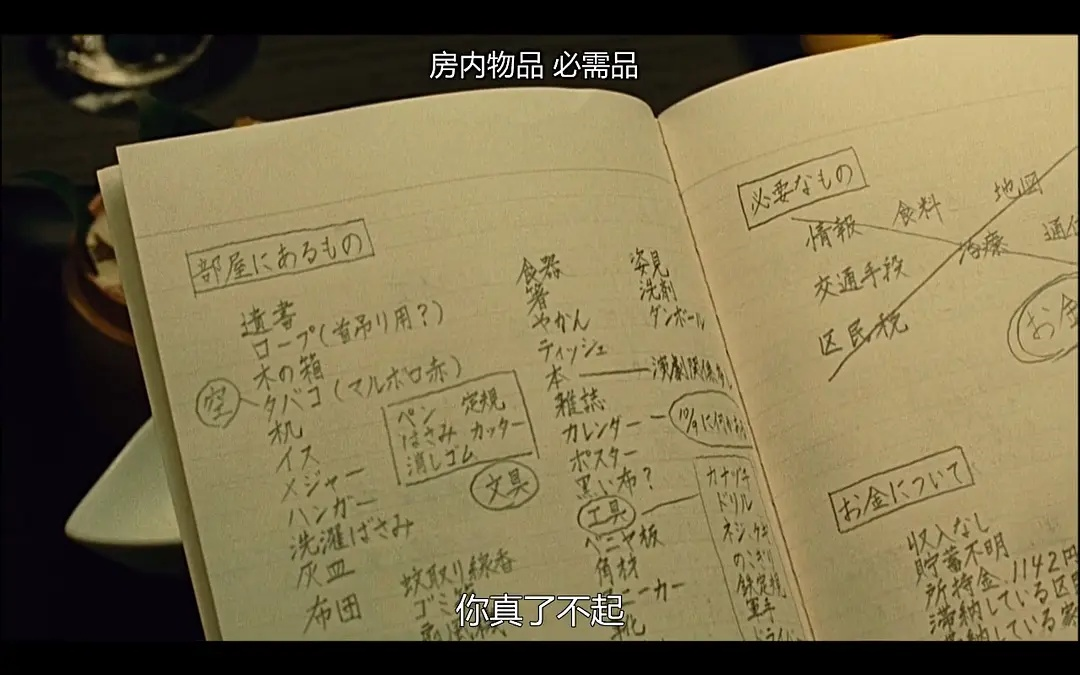 房内物品 必需品
部屋にあるもの
遺書
ロープ(首吊り用?)
木の箱
空
タバコ(マルボロ赤)
机
イス
メジャー
ハンガー
洗濯ばさみ
灰皿
布団
ペン 定規
はさみ カッター
消しゴム
文具
蚊取り線香
食器
箸
やかん
ティッシュ
本
雑誌
カレンダー
ポスター
黒い布?
工具
ベニヤ板
角材
靴
姿見
洗剤
ダンボール
演劇関係
10/9に何
カナヅチ
ドリル
のこぎり
軍手
必要なもの
情報 食料 地図
交通手段 治療
区民税
お金
お金について
収入なし
貯蓄不明
所持金 1142円
滞納している区
滞納している家
你真了不起